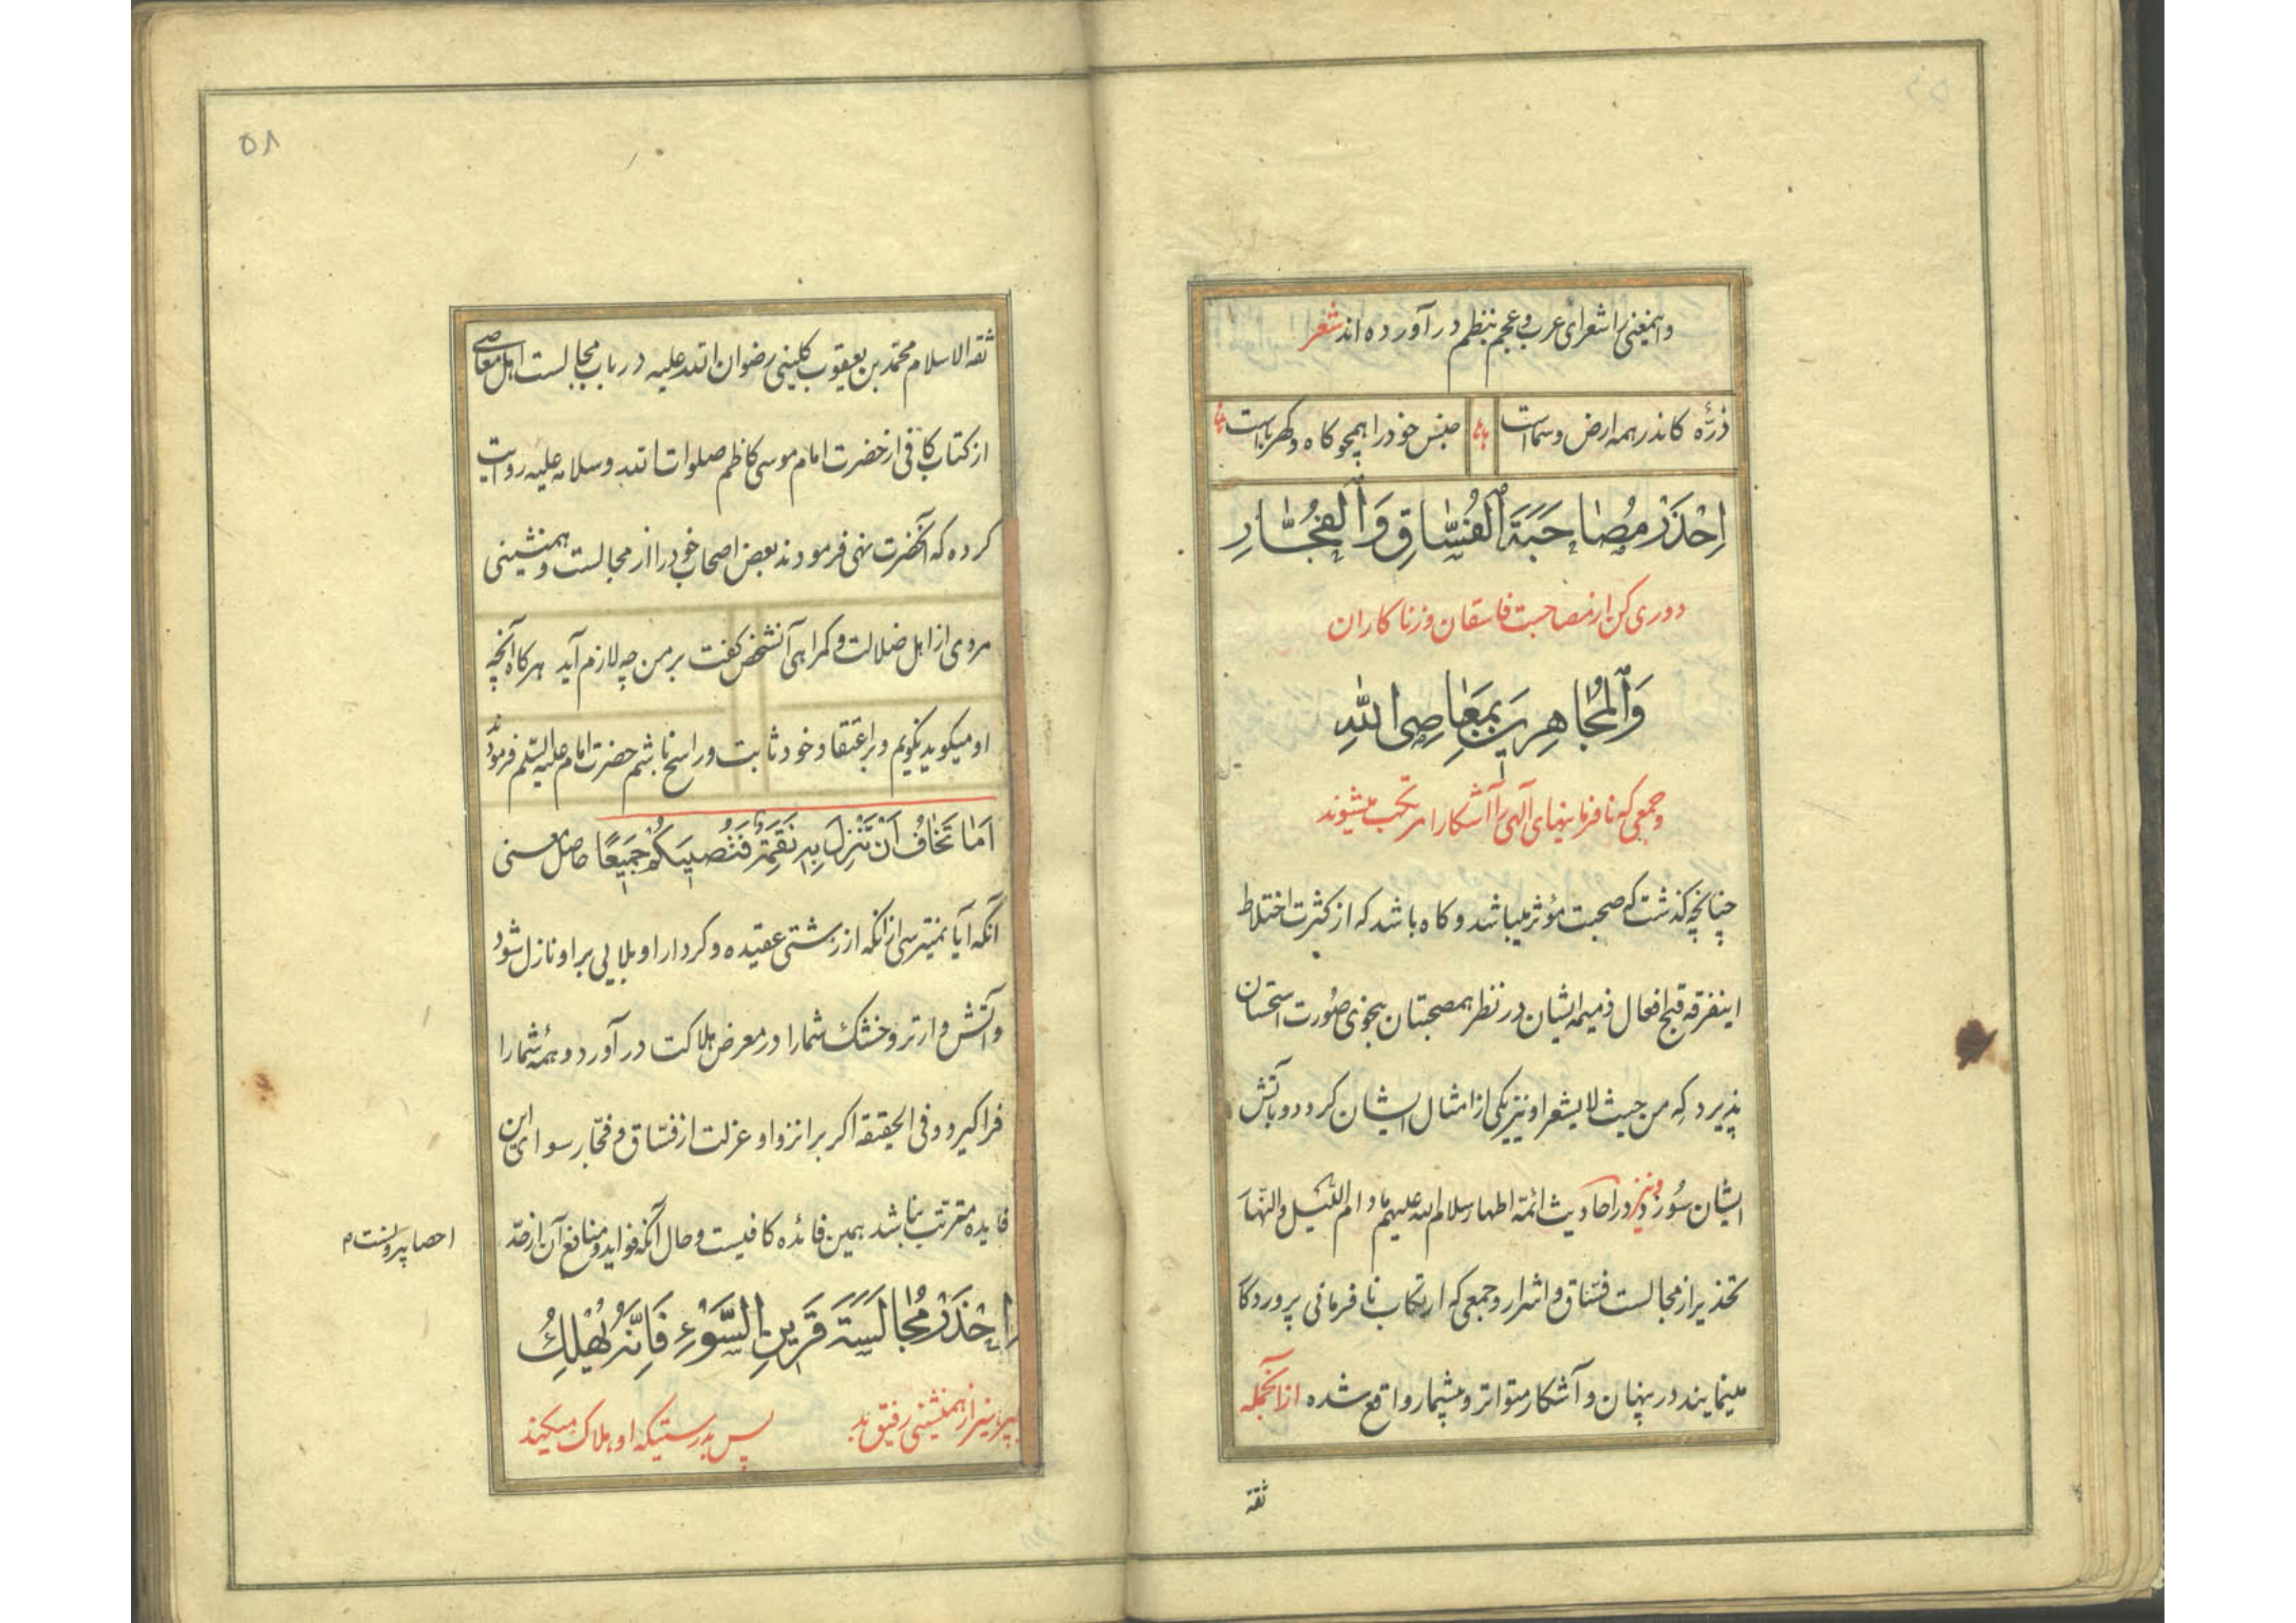 واینمعنی را شعرای عرب و عجم بنظم در آورده اند شعر
ذرّه ذرّه کاندر همه ارض و سماست جنس خود را همچو کاه و کهرباست
اِحْذَرْ مُصَاحَبَةَ الْفُسَّاقِ وَالْفُجَّارِ
دوری کن از مصاحبت فاسقان و زناکاران
وَالْمُجَاهِرِينَ بِمَعَاصِی اللهِ
و جمعی که نافرمانیهای آلهی را آشکارا مرتکب میشوند
چنانچه کذشت که صحبت مؤثر میباشد و کاه باشد که از کثرت اختلاط
اینفرقه قبح افعال ذمیمه ایشان در نظر همصحبتان بنحوی صورت استحسان
پذیرد که من حیث لا یشعر او نیز یکی از امثال ایشان کردد و بآتش
ایشان سوزد و نیز در احادیث ائمه اطهار سلام الله علیهم مادام اللیل والنهار
تحذیر از مجالست فسّاق و اشرار و جمعی که ارتکاب نافرمانی پروردکار
مینمایند در پنهان و آشکار متواتر و بیشمار واقع شده ازانجمله
ثقة
۵۸
ثقه الاسلام محمّد بن یعقوب کلینی رضوان الله علیه در باب مجالست اهل معاصی
از کتاب کافی از حضرت امام موسی کاظم صلوات الله و سلامه علیه روایت
کرده که آنحضرت نهی فرمودند بعض اصحاب خود را از مجالست و همنشینی
مردی از اهل ضلالت و کمراهی آنشخص کفت بر من چه لازم آید هرکاه آنچه
او میکوید نکویم و بر اعتقاد خود ثابت و راسخ باشم حضرت امام علیه السّلم فرمودند
اَمَا تَخَافُ اَنْ تَنْزِلَ بِهِ نَقِمَةٌ فَتُصِيبَكُمْ جَمِيعًا حاصل معنی
آنکه آیا نمیترسی از انکه از زشتی عقیده و کردار او بلایی بر او نازل شود
و آتش وار تر و خشک شما را در معرض هلاکت در آورد و همهٔ شما را
فراکیرد و فی الحقیقه اکر بر انزوا و عزلت از فسّاق و فجّار سوای این
فایده مترتب نباشد همین فائده کافیست و حال آنکه فواید و منافع آن از حدّ
احصا بیرونست م
اِحْذَرْ مُجَالَسَةَ قَرِينِ السَّوْءِ فَاِنَّهُ يُهْلِكُ
بپرهیز از همنشینی رفیق بد پس بدرستیکه او هلاک میکند